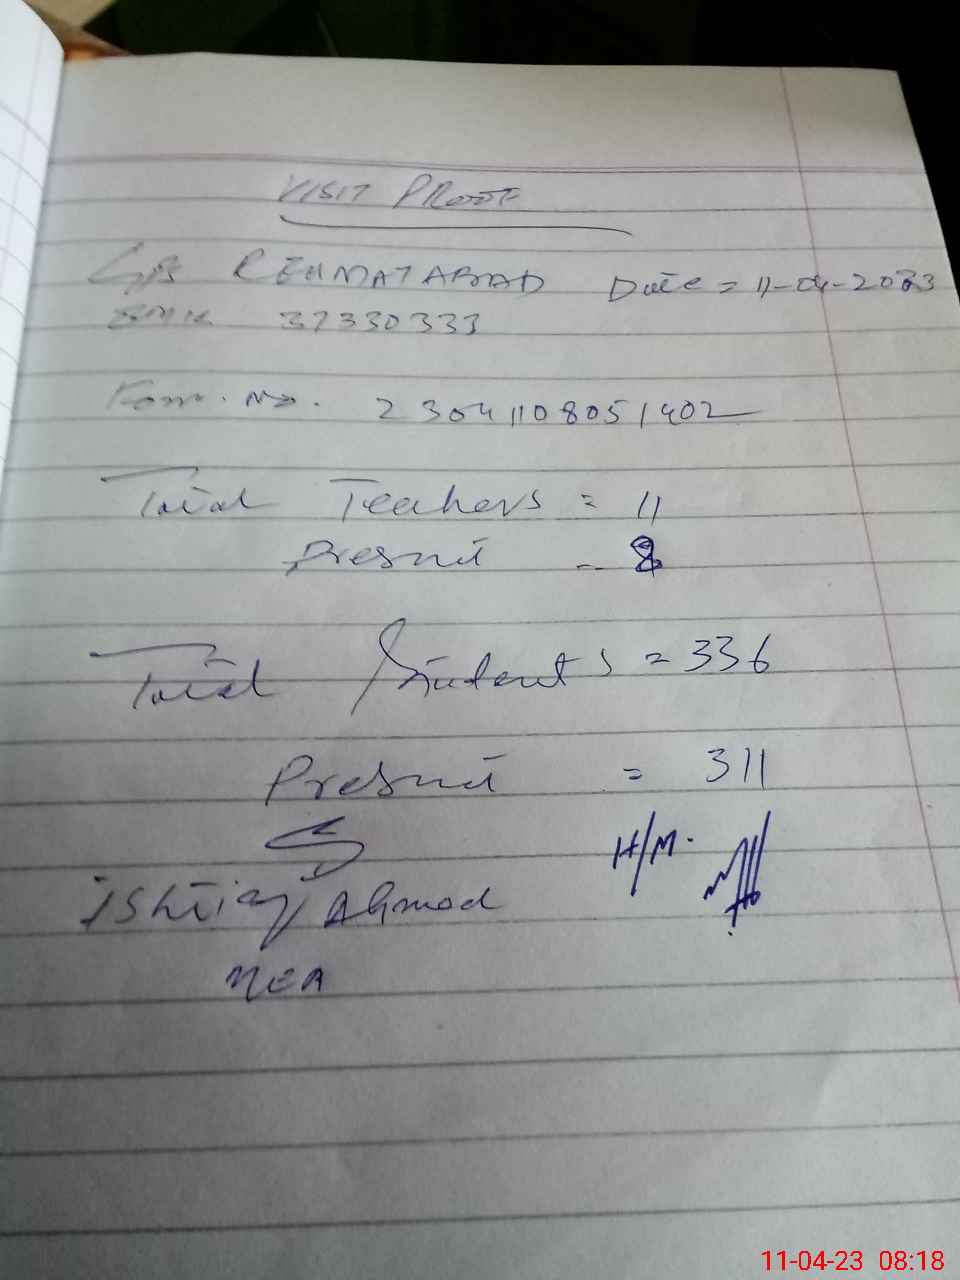 VISIT PROOF
G/PS REHMATABAD Date = 11-04-2023
EMIS 37330333
Form. No. 23041108051402
Total Teachers = 11
Present = 8
Total Students = 336
Present = 311
H/M.
Ishtiaq Ahmad
MEA
11-04-23 08:18